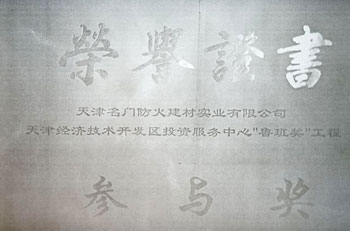 榮譽證書
天津名门防火建材实业有限公司
天津经济技术开发区投资服务中心"鲁班奖"工程
参与奖